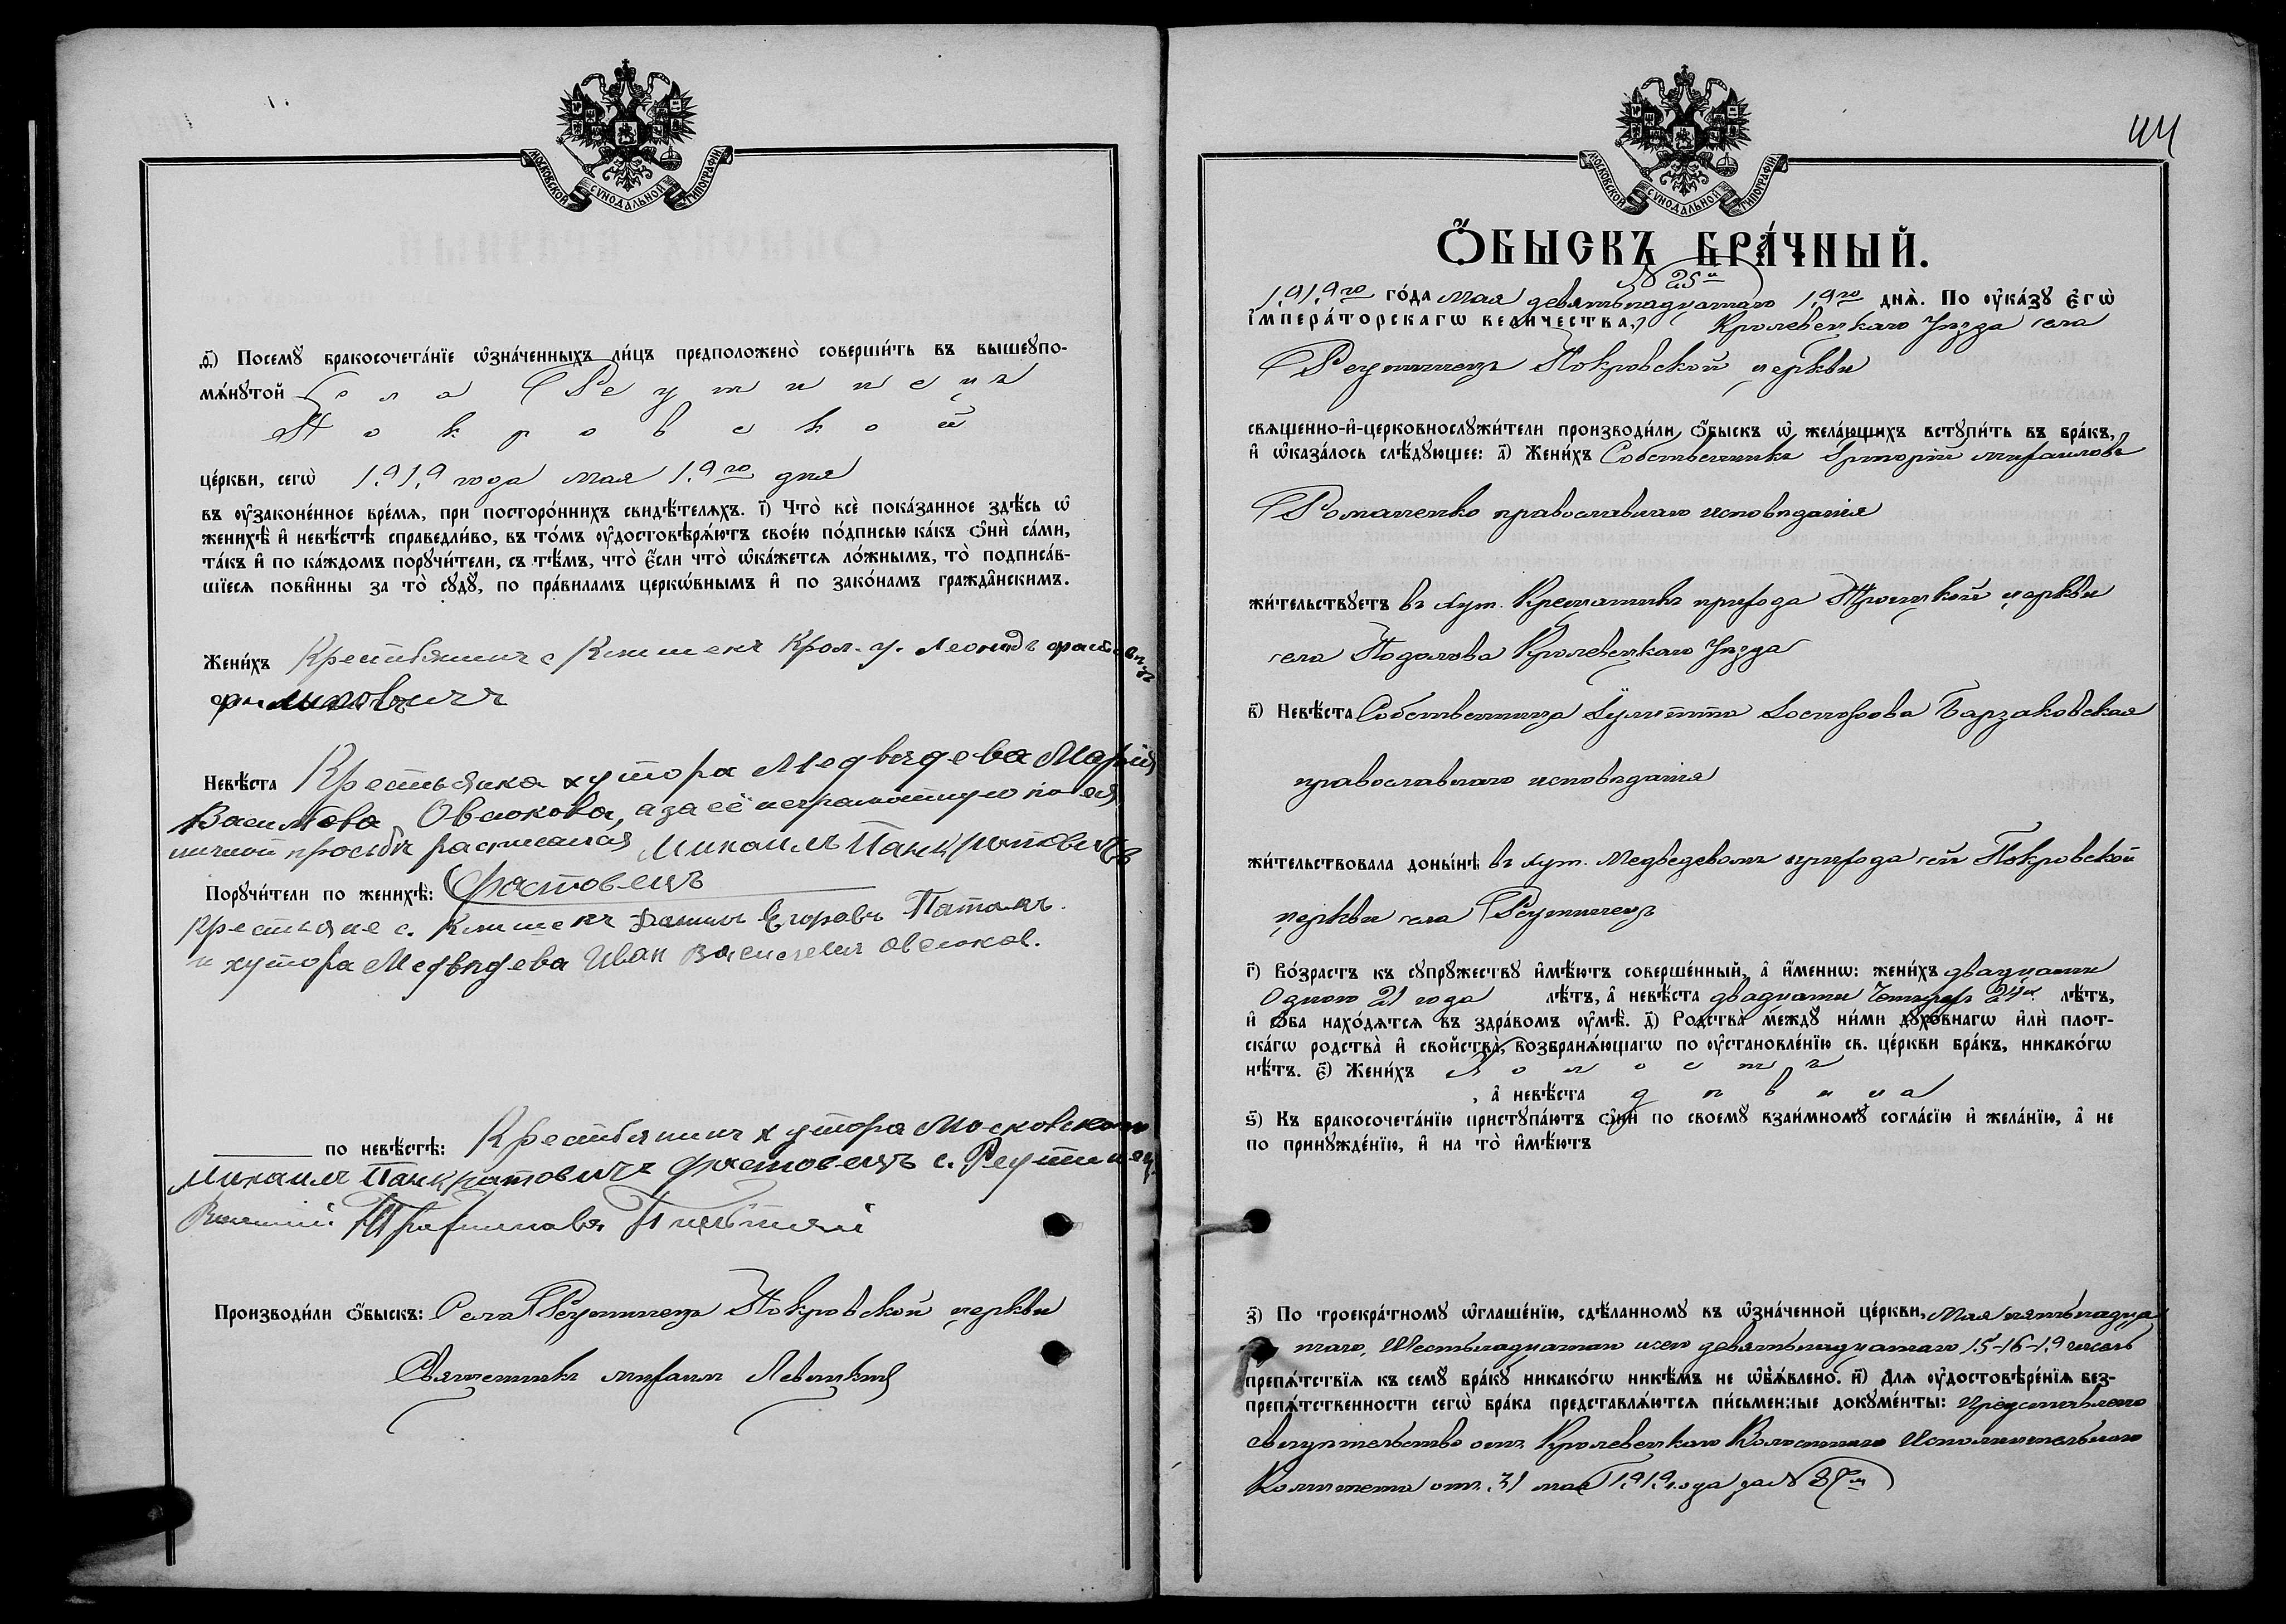 МОСКОВСКОЙ СѴНОДАЛЬНОЙ ТИПОГРАФІИ.
Ѳ҃) Посемꙋ̀ бракосочета́нїе ѡ҆зна́ченныхъ ли́цъ предположено̀ соверши́ть въ вышеꙋпо-
мѧ́нꙋтой Села Реутинецъ
Покровской
це́ркви, сегѡ̀ 1919 года мая 19го дня
въ ᲂу҆законе́нное вре́мѧ, при посторо́ннихъ свидѣ́телѧхъ. і҃) Что̀ всѐ пока́занное здѣ́сь ѡ҆
женихѣ̀ и҆ невѣ́стѣ справедли́во, въ то́мъ ᲂу҆достовѣрѧ́ютъ свое́ю по́дписью ка́къ ѻ҆нѝ са́ми,
та́къ и҆ по ка́ждомъ порꙋчи́тели, съ тѣ́мъ, что̀ є҆́сли что̀ ѡ҆ка́жетсѧ ло́жнымъ, то̀ подписа́в-
шїесѧ пови́нны за то̀ сꙋдꙋ̀, по пра́виламъ церкѡ́внымъ и҆ по зако́намъ гражда̂нскимъ.
Жени́хъ Крестьянинъ с Клишекъ Крол. у. Леонидъ
Филиповичъ
Невѣ́ста Крестьянка хутора Медведева Марія
Васильева Овсюкова, а за её неграмотную по ея
личной просьбе расписался Михаилъ Панкратовичъ
Порꙋчи́тели по женихѣ̀: Фастовецъ
Крестьяне с. Клишекъ Данилъ Егоровъ Паталах.
и хутора Медвѣдева Иван Василевич Овсюков.
по невѣ́стѣ: Крестьянинъ хутора Московского
Михаилъ Панкратовичъ Фастовецъ с. Реутинец.
Василій
Производи́ли ѻ҆́быскъ: Села Реутинецъ Покровской церкви
Священникъ Михаилъ Левицкій
44
МОСКОВСКОЙ СѴНОДАЛЬНОЙ ТИПОГРАФІИ.
Ѻ҆́БЫСКЪ БРА́ЧНЫЙ.
№ 25й
1919го го́да Мая девятьнадцатаго 19го днѧ̀. По ᲂу҆ка́зꙋ є҆гѡ̀
і҆мпера́торскагѡ вели́чества, Кролевецкаго Уѣзда села
Реутинецъ Покровской церкви
свѧще́нно-и҆-церковнослꙋжи́тели производи́ли ѻ҆́быскъ ѡ҆ жела́ющихъ встꙋпи́ть въ бра́къ,
и҆ ѡ҆каза́лось слѣ́дꙋющее: а҃) Жени́хъ Собственникъ Григорій Михаиловъ
Романенко православнаго исповѣданія
жи́тельствꙋетъ въ хут. Крещатикъ прихода Троицкой церкви
села Подолова Кролевецкаго Уѣзда
в҃) Невѣ́ста Собственница
православнаго исповѣданія
жи́тельствовала доны́нѣ въ хут. Медведевомъ прихода сей Покровской
церкви села Реутинецъ
г҃) Во́зрастъ къ сꙋпрꙋжествꙋ̀ и҆мѣ́ютъ соверше́нный, а҆ и҆́менно: жени́хъ двадцати
Одного 21 года лѣ́тъ, а҆ невѣ́ста двадцати Четырехъ 24х лѣ́тъ,
и҆ ѻ҆́ба нахо́дѧтсѧ въ здра́вомъ ᲂу҆мѣ̀. д҃) Родства̀ ме́ждꙋ ни́ми дꙋхо́внагѡ и҆лѝ плот-
ска́гѡ родства̀ и҆ свойства̀, возбранѧ́ющагѡ по ᲂу҆становле́нїю св. це́ркви бра́къ, никако́гѡ
нѣ́тъ. є҃) Жени́хъ Холостъ
, а҆ невѣ́ста дѣвица
ѕ҃) Къ бракосочета́нїю пристꙋпа́ютъ ѻ҆нѝ по своемꙋ̀ взаи́мномꙋ согла́сїю и҆ жела́нїю, а҆ не
по принꙋжде́нїю, и҆ на то̀ и҆мѣ́ютъ
з҃) По троекра́тномꙋ ѡ҆глаше́нїю, сдѣ́ланномꙋ въ ѡ҆зна́ченной це́ркви, Мая пятьнадца
таго, Шестьнадцатаго девятьнадцатаго 15-16-19 чиселъ
препѧ́тствїѧ къ семꙋ̀ бра́кꙋ никако́гѡ никѣ́мъ не ѡ҆б̾ѧ́влено. и҃) Длѧ ᲂу҆достовѣре́нїѧ без-
препѧ́тственности сегѡ̀ бра́ка представлѧ́ютсѧ пи́сьменные докꙋме́нты: Представлено
свидѣтельство отъ Кролевецкаго Волостнаго Исполнительнаго
Комитета отъ 31 мая 1919 года за №